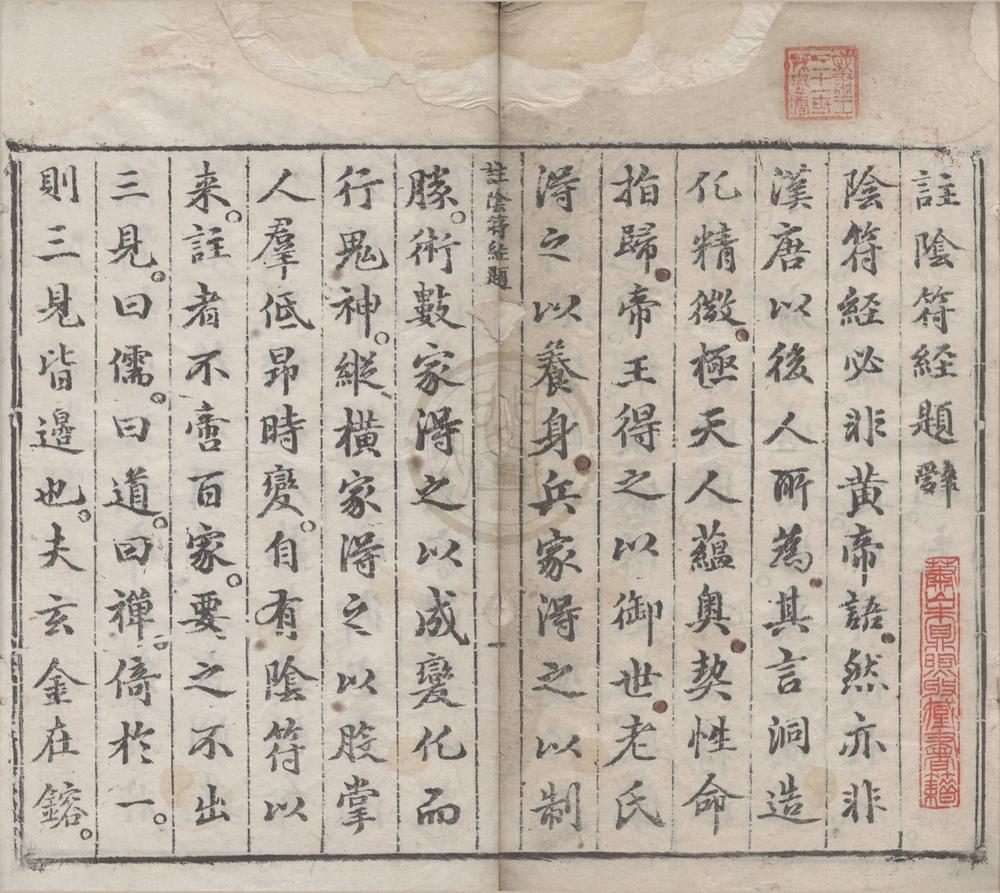 註陰符経題辭
陰符経必非黄帝語。然亦非
漢唐以後人所為。其言洞造
化精微。極天人蘊奥。契性命
指歸。帝王得之以御世。老氏
得之以養身。兵家得之以制
註陰符経題
一
勝。術數家得之以成變化而
行鬼神。縱横家得之以股掌
人羣低昻時變。自有陰符以
来。註者不啻百家。要之不出
三見。曰儒。曰道。曰禪。倚於一。
則三見皆邊也。夫玄金在鎔。